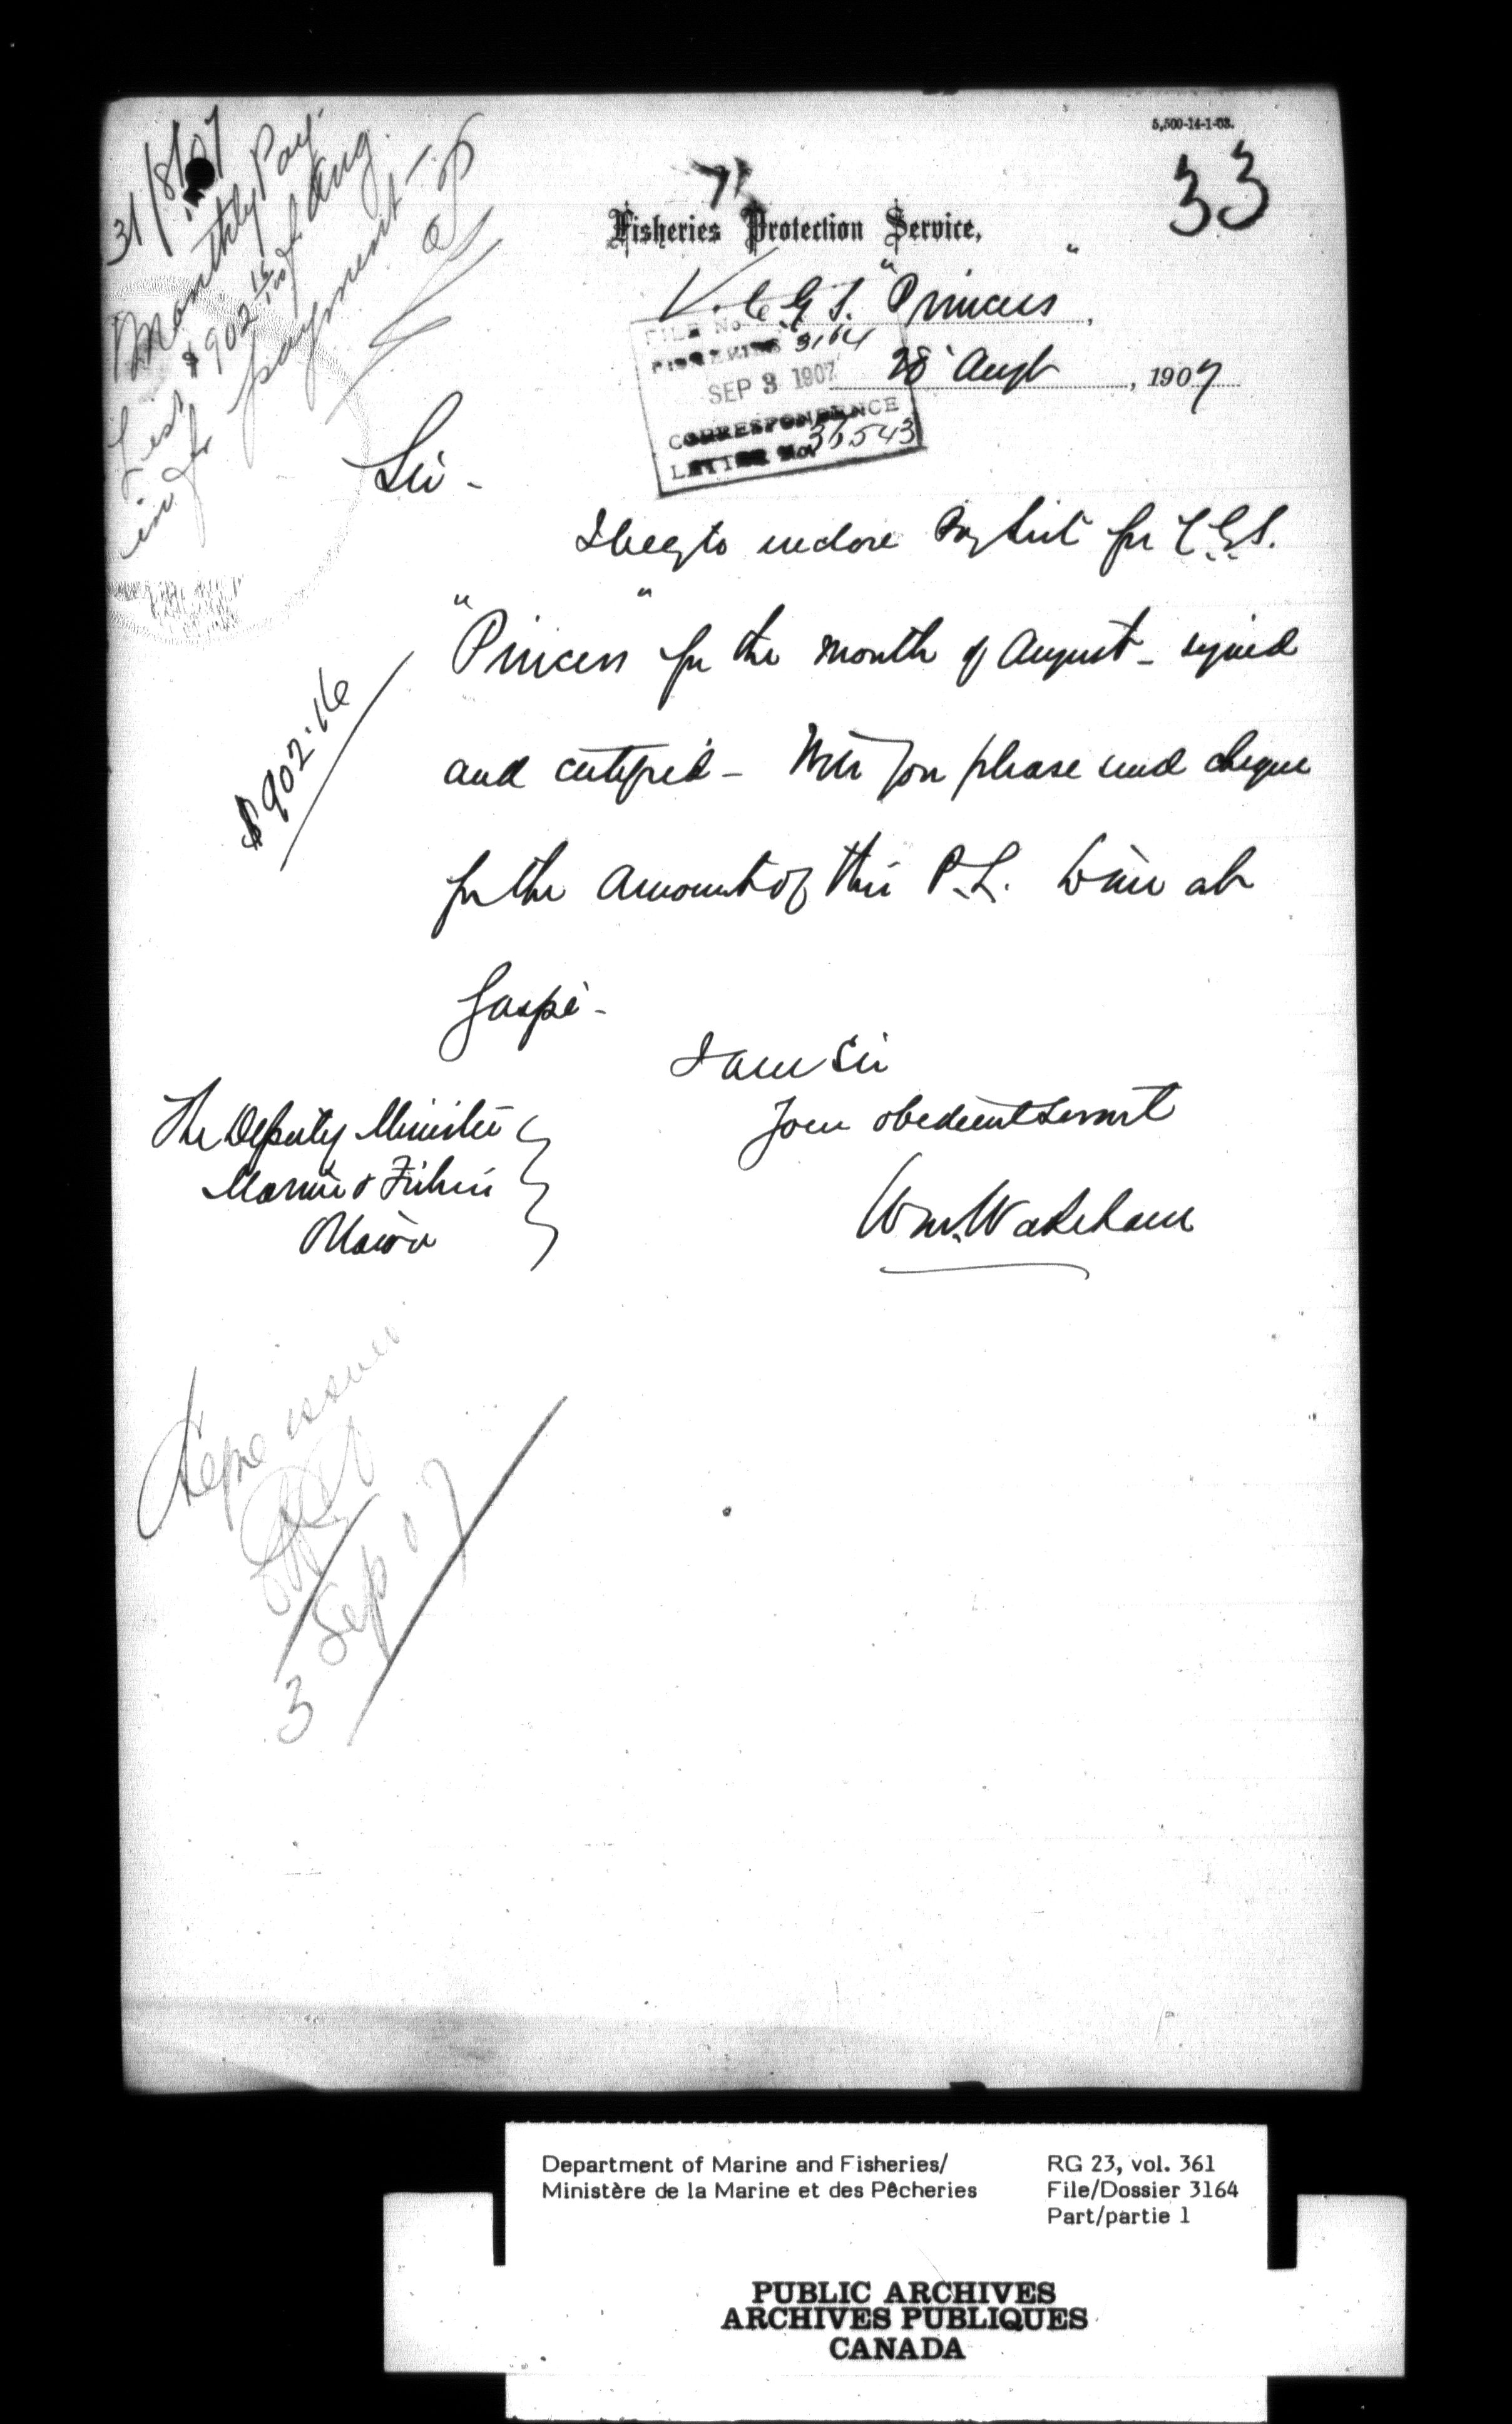 5,500-14-1-03.
33
71
31/8/07
Monthly Pay
List $902 16/100 of Aug.
for payment -
Fisheries Protection Service,
C.G.S. "Princess",
28 Augt, 1907
FILE No.
FISHERIES 3164
SEP 3 1907
CORRESPONDENCE
LETTER No. 36543
Sir -
I beg to inclose Pay List for C.G.S.
"Princess" for the month of August - signed
and certified - Will you please send cheque
for the amount of this P.L. to me at
Gaspé -
$902.16
I am Sir
Your obedient Servant
Wm. Wakeham
The Deputy Minister
Marine & Fisheries
Ottawa
issued
3 Sep 07
Department of Marine and Fisheries/
Ministère de la Marine et des Pêcheries
RG 23, vol. 361
File/Dossier 3164
Part/partie 1
PUBLIC ARCHIVES
ARCHIVES PUBLIQUES
CANADA